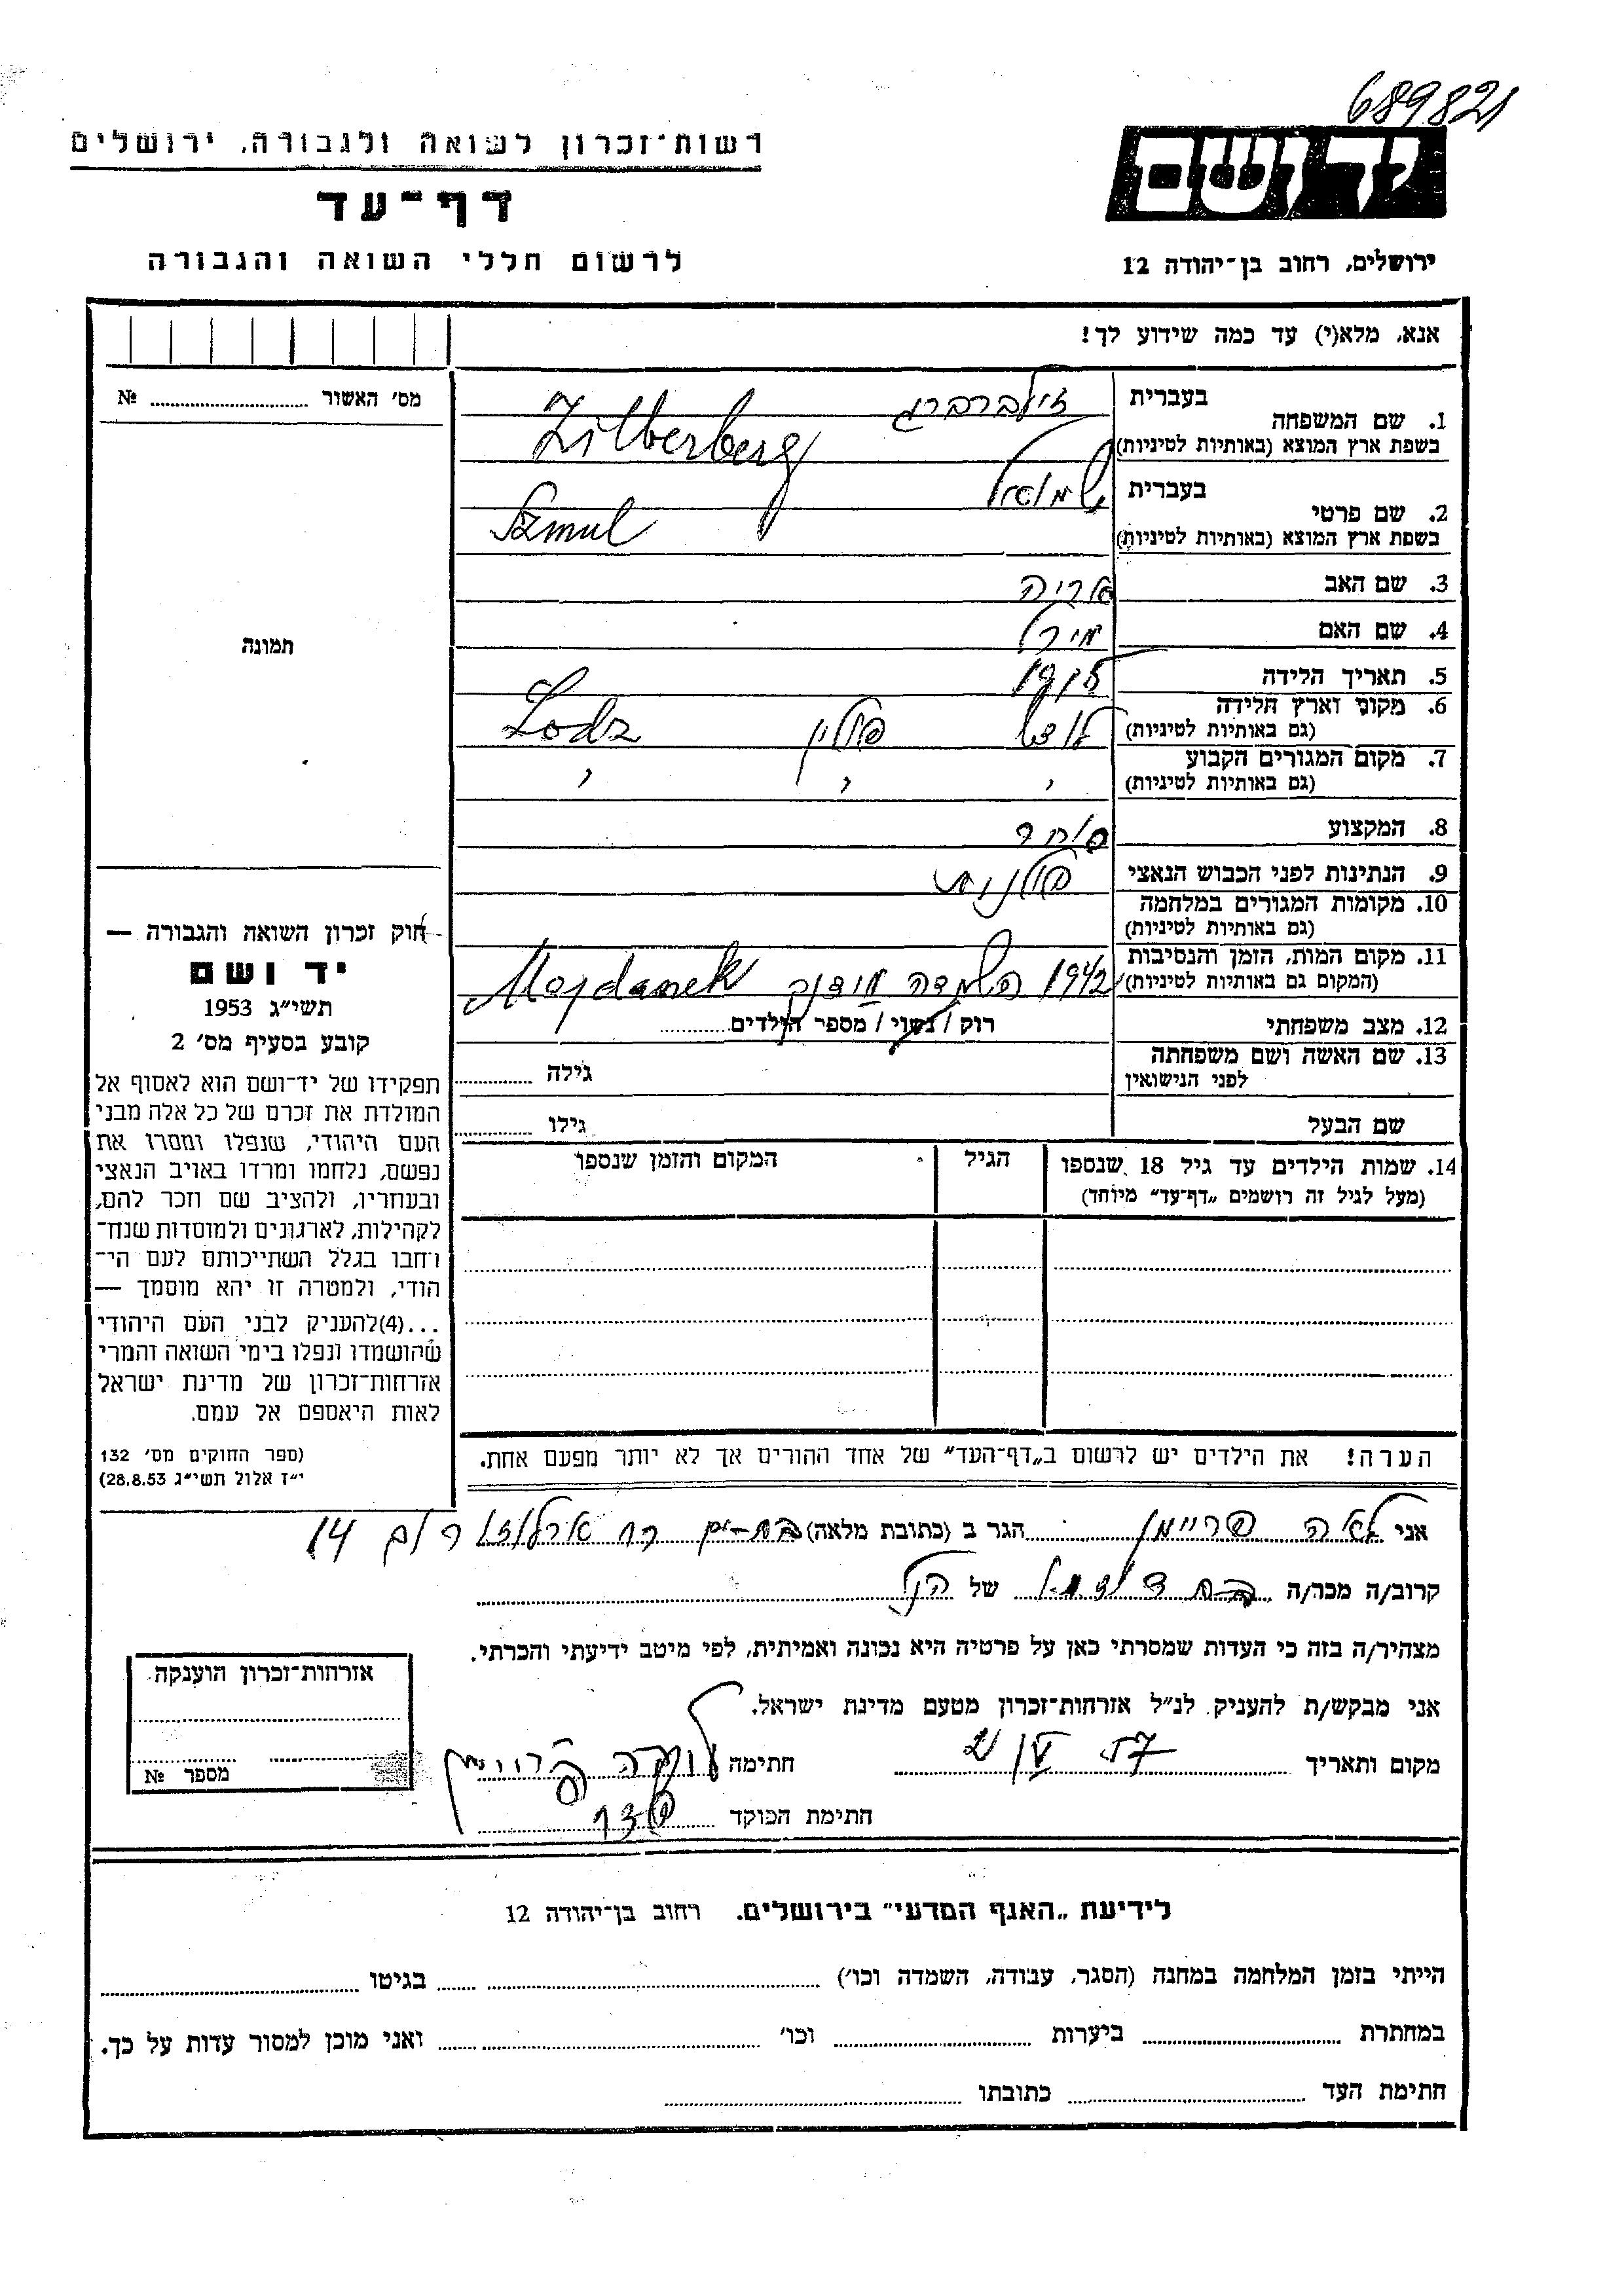 689821
רשות־זכרון לשואה ולגבורה, ירושלים
יד ושם
דף־עד
לרשום חללי השואה והגבורה
ירושלים, רחוב בן־יהודה 12
אנא, מלא(י) עד כמה שידוע לך!
מס׳ האשור ............ №
תמונה
בעברית זילברברג
1. שם המשפחה
בשפת ארץ המוצא (באותיות לטיניות) Zilberberg
בעברית שמואל
2. שם פרטי
בשפת ארץ המוצא (באותיות לטיניות) Szmul
3. שם האב אריה
4. שם האם מירל
5. תאריך הלידה
6. מקום וארץ הלידה
(גם באותיות לטיניות) לודז׳ פולין Lodz
7. מקום המגורים הקבוע
(גם באותיות לטיניות) " " "
8. המקצוע סוחר
9. הנתינות לפני הכבוש הנאצי פולנית
10. מקומות המגורים במלחמה
(גם באותיות לטיניות)
11. מקום המות, הזמן והנסיבות
(המקום גם באותיות לטיניות) 1942 השמדה מידנק Majdanek
12. מצב משפחתי רוק / נשוי / מספר הילדים............
13. שם האשה ושם משפחתה
לפני הנישואין גילה ............
שם הבעל גילו ............
14. שמות הילדים עד גיל 18 שנספו הגיל המקום והזמן שנספו
(מעל לגיל זה רושמים „דף־עד״ מיוחד)
חוק זכרון השואה והגבורה —
יד ושם
תשי״ג 1953
קובע בסעיף מס׳ 2
תפקידו של יד־ושם הוא לאסוף אל
המולדת את זכרם של כל אלה מבני
העם היהודי, שנפלו ומסרו את
נפשם, נלחמו ומרדו באויב הנאצי
ובעוזריו, ולהציב שם וזכר להם,
לקהילות, לארגונים ולמוסדות שנח־
רחבו בגלל השתייכותם לעם הי־
הודי, ולמטרה זו יהא מוסמך —
...(4)להעניק לבני העם היהודי
שהושמדו ונפלו בימי השואה והמרי
אזרחות־זכרון של מדינת ישראל
לאות היאספם אל עמם.
(ספר החוקים מס׳ 132
י״ז אלול תשי״ג 28.8.53)
הערה! את הילדים יש לרשום ב„דף־העד״ של אחד ההורים אך לא יותר מפעם אחת.
אני לאה פריימן הגר ב (כתובת מלאה) בת-ים רח ארלוזורוב 14
קרוב/ה מכר/ה בת דודה של הנ״ל
מצהיר/ה בזה כי העדות שמסרתי כאן על פרטיה היא נכונה ואמיתית, לפי מיטב ידיעתי והכרתי.
אני מבקש/ת להעניק לנ״ל אזרחות־זכרון מטעם מדינת ישראל.
מקום ותאריך חתימה לאה פריימן
חתימת הפוקד
אזרחות־זכרון הוענקה
מספר №
לידיעת „האגף המדעי״ בירושלים. רחוב בן־יהודה 12
הייתי בזמן המלחמה במחנה (הסגר, עבודה, השמדה וכו׳) ............ בגיטו ............
במחתרת ............ ביערות ............ וכו׳ ............ ואני מוכן למסור עדות על כך.
חתימת העד ............ כתובתו ............